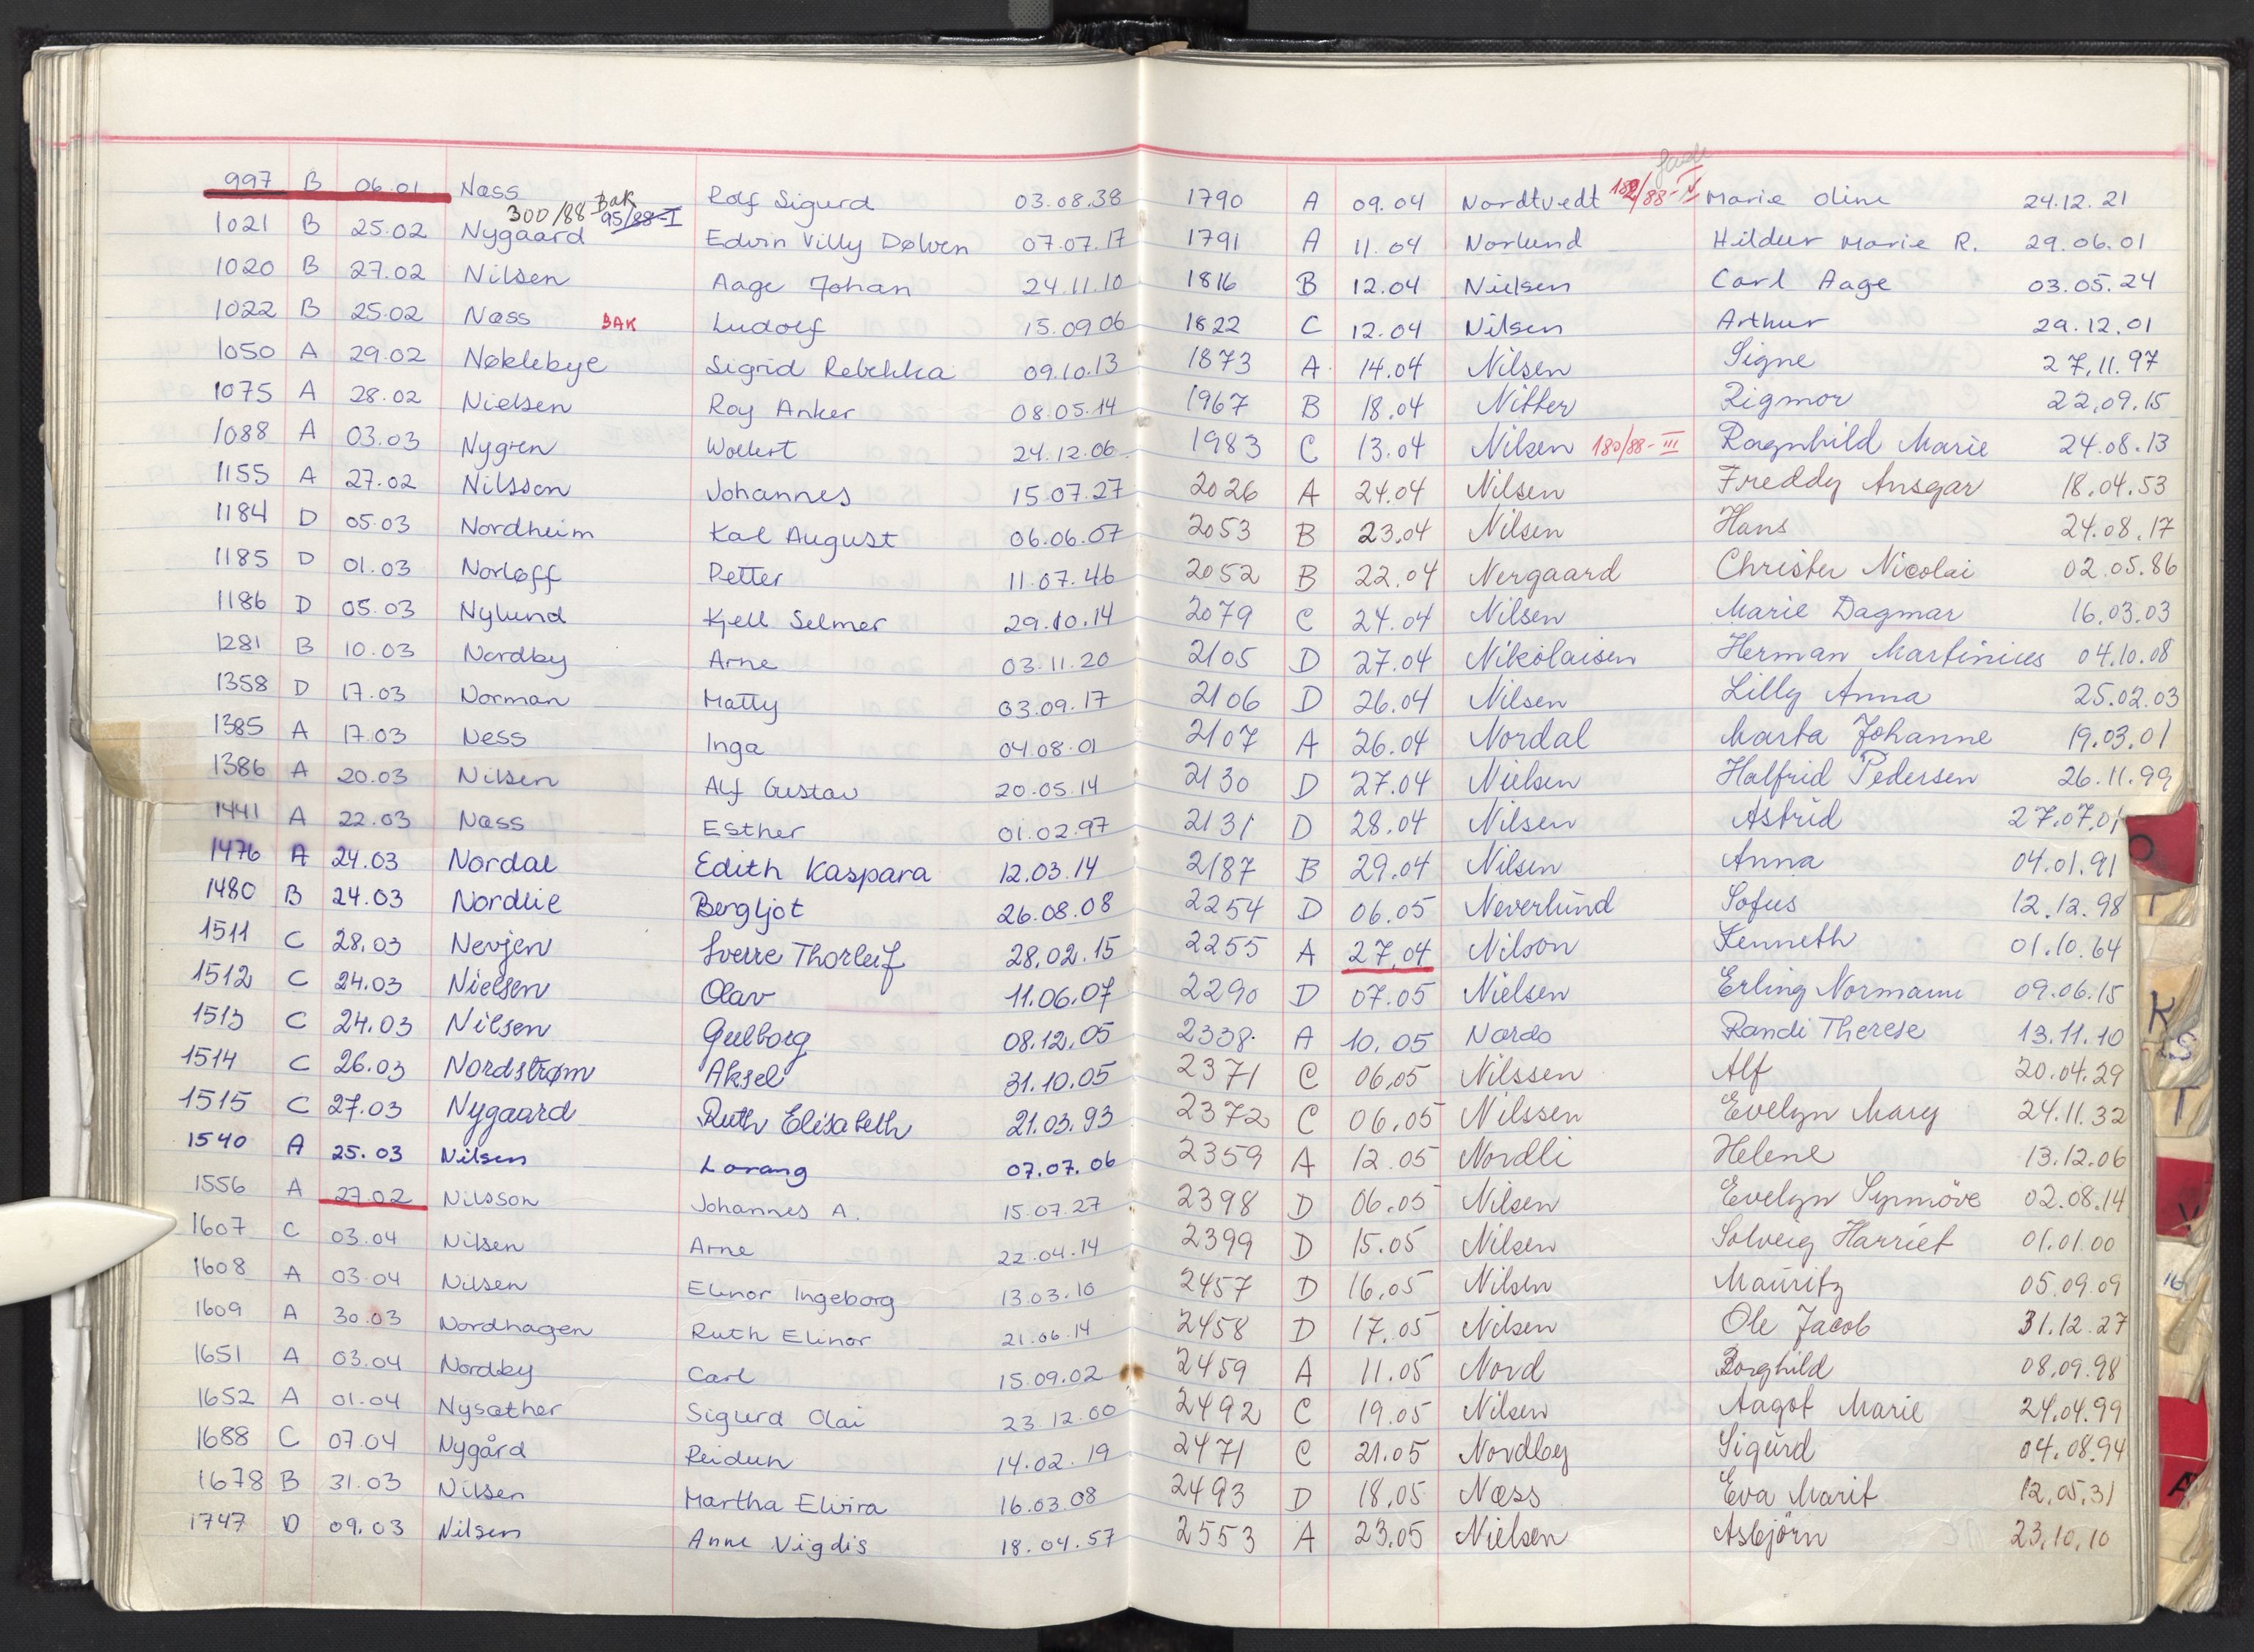 997 B 06.01 Næss Rolf Sigurd 03.08.38
300/88 Bak
95/88-I
1021 B 25.02 Nygaard Edvin Villy Dølven 07.07.17
1020 B 27.02 Nilsen Aage Johan 24.11.10
1022 B 25.02 Næss BAK Ludolf 15.09.06
1050 A 29.02 Nøklebye Sigrid Rebekka 09.10.13
1075 A 28.02 Nielsen Roy Anker 08.05.14
1088 A 03.03 Nygren Wollert 24.12.06
1155 A 27.02 Nilsson Johannes 15.07.27
1184 D 05.03 Nordheim Karl August 06.06.07
1185 D 01.03 Norløff Petter 11.07.46
1186 D 05.03 Nylund Kjell Selmer 29.10.14
1281 B 10.03 Nordby Arne 03.11.20
1358 D 17.03 Norman Matty 03.09.17
1385 A 17.03 Ness Inga 04.08.01
1386 A 20.03 Nilsen Alf Gustav 20.05.14
1441 A 22.03 Næss Esther 01.02.97
1476 A 24.03 Nordal Edith Kaspara 12.03.14
1480 B 24.03 Nordlie Bergljot 26.08.08
1511 C 28.03 Nevjen Sverre Thorleif 28.02.15
1512 C 24.03 Nielsen Olav 11.06.07
1513 C 24.03 Nilsen Gulborg 08.12.05
1514 C 26.03 Nordstrøm Aksel 31.10.05
1515 C 27.03 Nygaard Ruth Elisabeth 21.03.93
1540 A 25.03 Nilsen Lorang 07.07.06
1556 A 27.02 Nilsson Johannes A. 15.07.27
1607 C 03.04 Nilsen Arne 22.04.14
1608 A 03.04 Nilsen Elinor Ingeborg 13.03.10
1609 A 30.03 Nordhagen Ruth Elinor 21.06.14
1651 A 03.04 Nordby Carl 15.09.02
1652 A 01.04 Nysæther Sigurd Olai 23.12.00
1688 C 07.04 Nygård Reidun 14.02.19
1678 B 31.03 Nilsen Martha Elvira 16.03.08
1747 D 09.03 Nilsen Anne Vigdis 18.04.57
1790 A 09.04 Nordtvedt Marie Oline 24.12.21
1791 A 11.04 Norlund Hildur Marie R. 29.06.01
1816 B 12.04 Nielsen Carl Aage 03.05.24
1822 C 12.04 Nilsen Arthur 29.12.01
1873 A 14.04 Nilsen Signe 27.11.97
1967 B 18.04 Nitter Rigmor 22.09.15
1983 C 13.04 Nilsen 180/88-III Ragnhild Marie 24.08.13
2026 A 24.04 Nilsen Freddy Ansgar 18.04.53
2053 B 23.04 Nilsen Hans 24.08.17
2052 B 22.04 Nergaard Christer Nicolai 02.05.86
2079 C 24.04 Nilsen Marie Dagmar 16.03.03
2105 D 27.04 Nikolaisen Herman Martinius 04.10.08
2106 D 26.04 Nilsen Lilly Anna 25.02.03
2107 A 26.04 Nordal Marta Johanne 19.03.01
2130 D 27.04 Nielsen Halfrid Pedersen 26.11.99
2131 D 28.04 Nilsen Astrid 27.07.01
2187 B 29.04 Nilsen Anna 04.01.91
2254 D 06.05 Neverlund Sofus 12.12.98
2255 A 27.04 Nilson Kenneth 01.10.64
2290 D 07.05 Nielsen Erling Normann 09.06.15
2338 A 10.05 Nordo Randi Therese 13.11.10
2371 C 06.05 Nilssen Alf 20.04.29
2372 C 06.05 Nilssen Evelyn Mary 24.11.32
2359 A 12.05 Nordli Helene 13.12.06
2398 D 06.05 Nilsen Evelyn Synnöve 02.08.14
2399 D 15.05 Nilsen Solveig Harriet 01.01.00
2457 D 16.05 Nilsen Mauritz 05.09.09
2458 D 17.05 Nilsen Ole Jacob 31.12.27
2459 A 11.05 Nord Borghild 08.09.98
2492 C 19.05 Nilsen Aagot Marie 24.04.99
2471 C 21.05 Nordby Sigurd 04.08.94
2493 D 18.05 Næss Eva Marit 12.05.31
2553 A 23.05 Nielsen Asbjörn 23.10.10
O
K
S
T
V
16
A